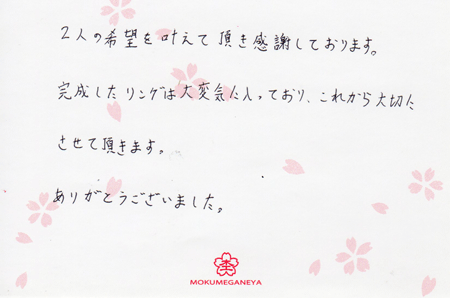 2人の希望を叶えて頂き感謝しております。
完成したリングは大変気に入っており、これから大切に
させて頂きます。
ありがとうございました。
MOKUMEGANEYA